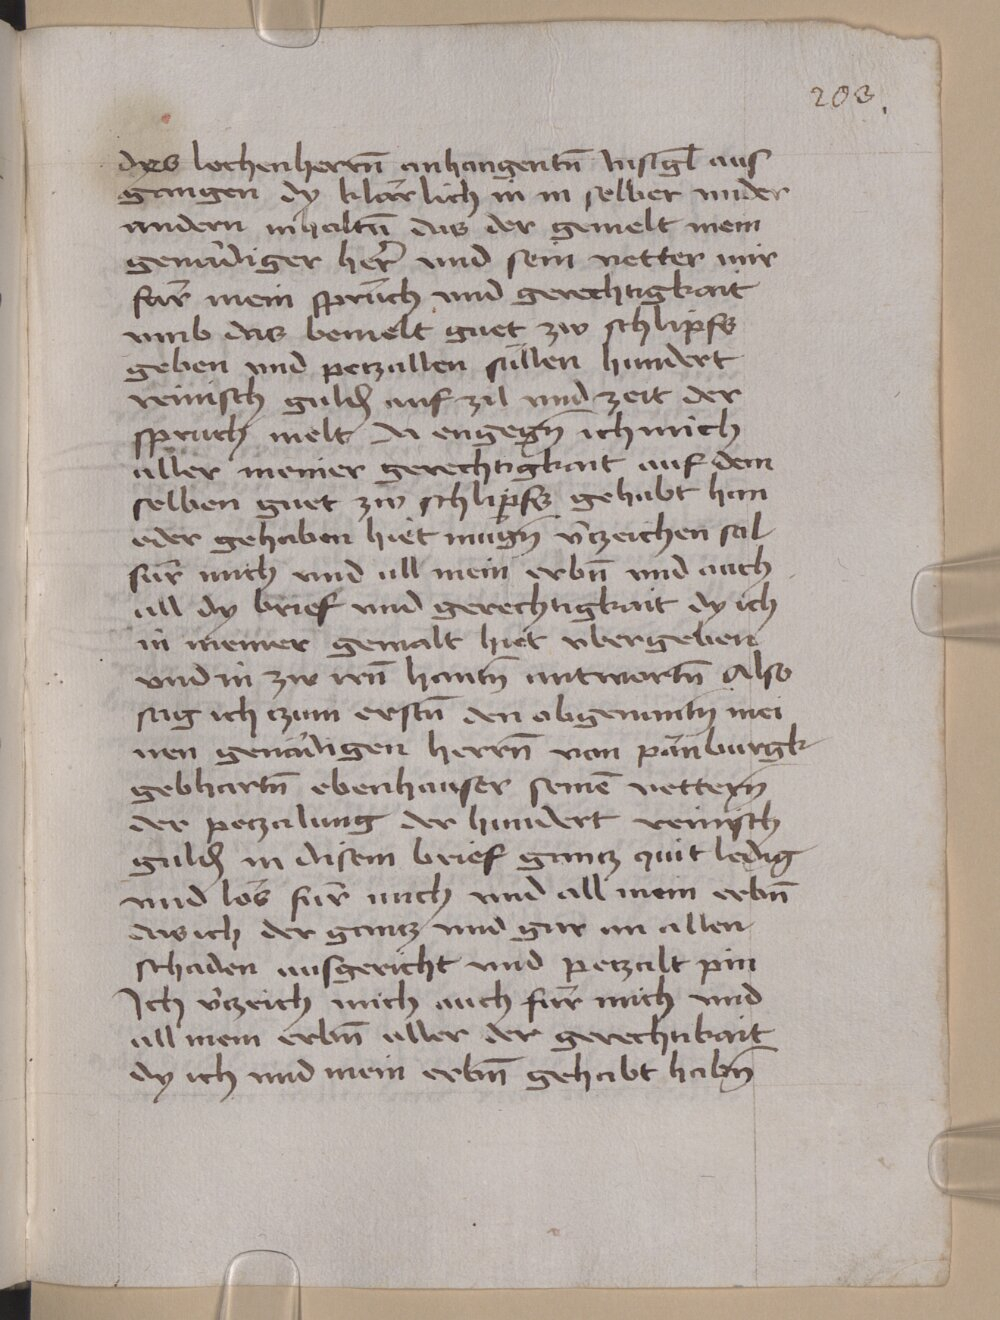 203.
des lechenherrn̄ anhangentn̄ Insigl̄ aus
gangen dy klarlich in in selber under
andern inhaltn̄ das der gemelt mein
genadiger her̄ und sein vetter mir
fur mein spruch und gerechtigkait
umb das bemelt guet zw schlipfs
geben und petzallen sullen hundert
reinisch guldn auf zil und zeit der
spruch melt da engegn̄ ich mich
aller meiner gerechtigkait auf dem
selben guet zw schlipfs gehabt han
oder gehaben hiet mugn̄ v̄tzeichen sal
fur mich und all mein erbn̄ und auch
all dy brief und gerechtigkait dy ich
in meiner gewalt hiet ubergeben
und in zw irn̄ hantn̄ antwortn̄ Also
sag ich czum erstn̄ den abgenantn̄ mei
nen genadigen herrn̄ von panburgk
gebhartn̄ ebenhauser seinē vettern̄
der petzalung der hundert reinisch
guldn in disem brief gantz quit ledig
und los fur mich und all mein erbn̄
das ich der gantz und gar an allen
schaden ausgericht und petzalt pin
Ich v̄tzeich mich auch fur mich und
all mein erbn̄ aller der gerechtikait
dy ich und mein erbn̄ gehabt habn̄